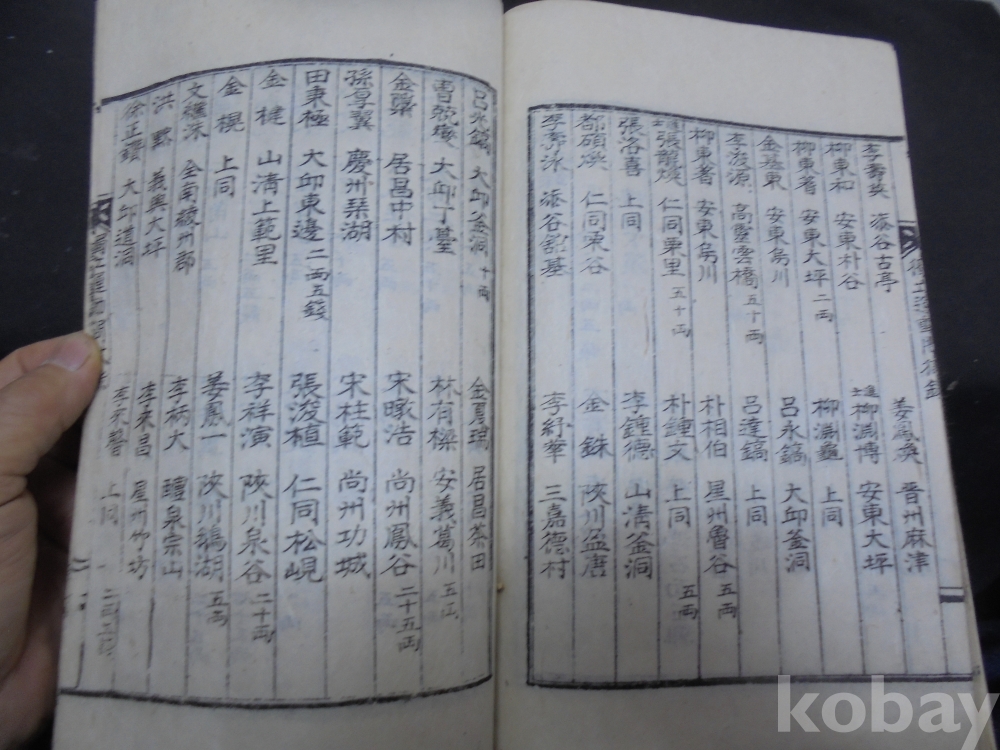 李壽英 漆谷古亭
姜鳳煥 晋州麻津
柳東和 安東朴谷
進士柳淵博 安東大坪
柳東蓍 安東大坪 二両
柳淵龜 上同
金 東 安東烏川
呂永鎬 大邱釜洞
李浚源 高靈雲橋 五十両
呂達鎬 上同
柳東 安東烏川
朴相伯 星州魯谷 五両
張龍煥 仁同栗里 五十両
朴鍾文 上同 五両
張洛喜 上同
李鍾德 山淸釜洞
都碩煥 仁同栗谷
金銖 陜川盆唐
李壽泳 漆谷 基
李紓華 三嘉德村
呂 大邱釜洞 十両
金夏瑞 居昌茶田
曺兢燮 大邱丁臺
林有樑 安義葛川 五両
金 居昌中村
宋暾浩 尚州鳳谷 二十五両
孫厚翼 慶州琴湖
宋柱範 尚州功城
田秉極 大邱東邊 二両五錢
張浚植 仁同松峴
金楗 山淸上範里
李祥演 陜川泉谷 二十両
金榥 上同
姜鳳一 陜川鴻湖 五両
文 全南 州郡
李柄大 醴泉宗山
洪 義興大坪
李來昌 星州 坊
徐正 大邱道洞
上同